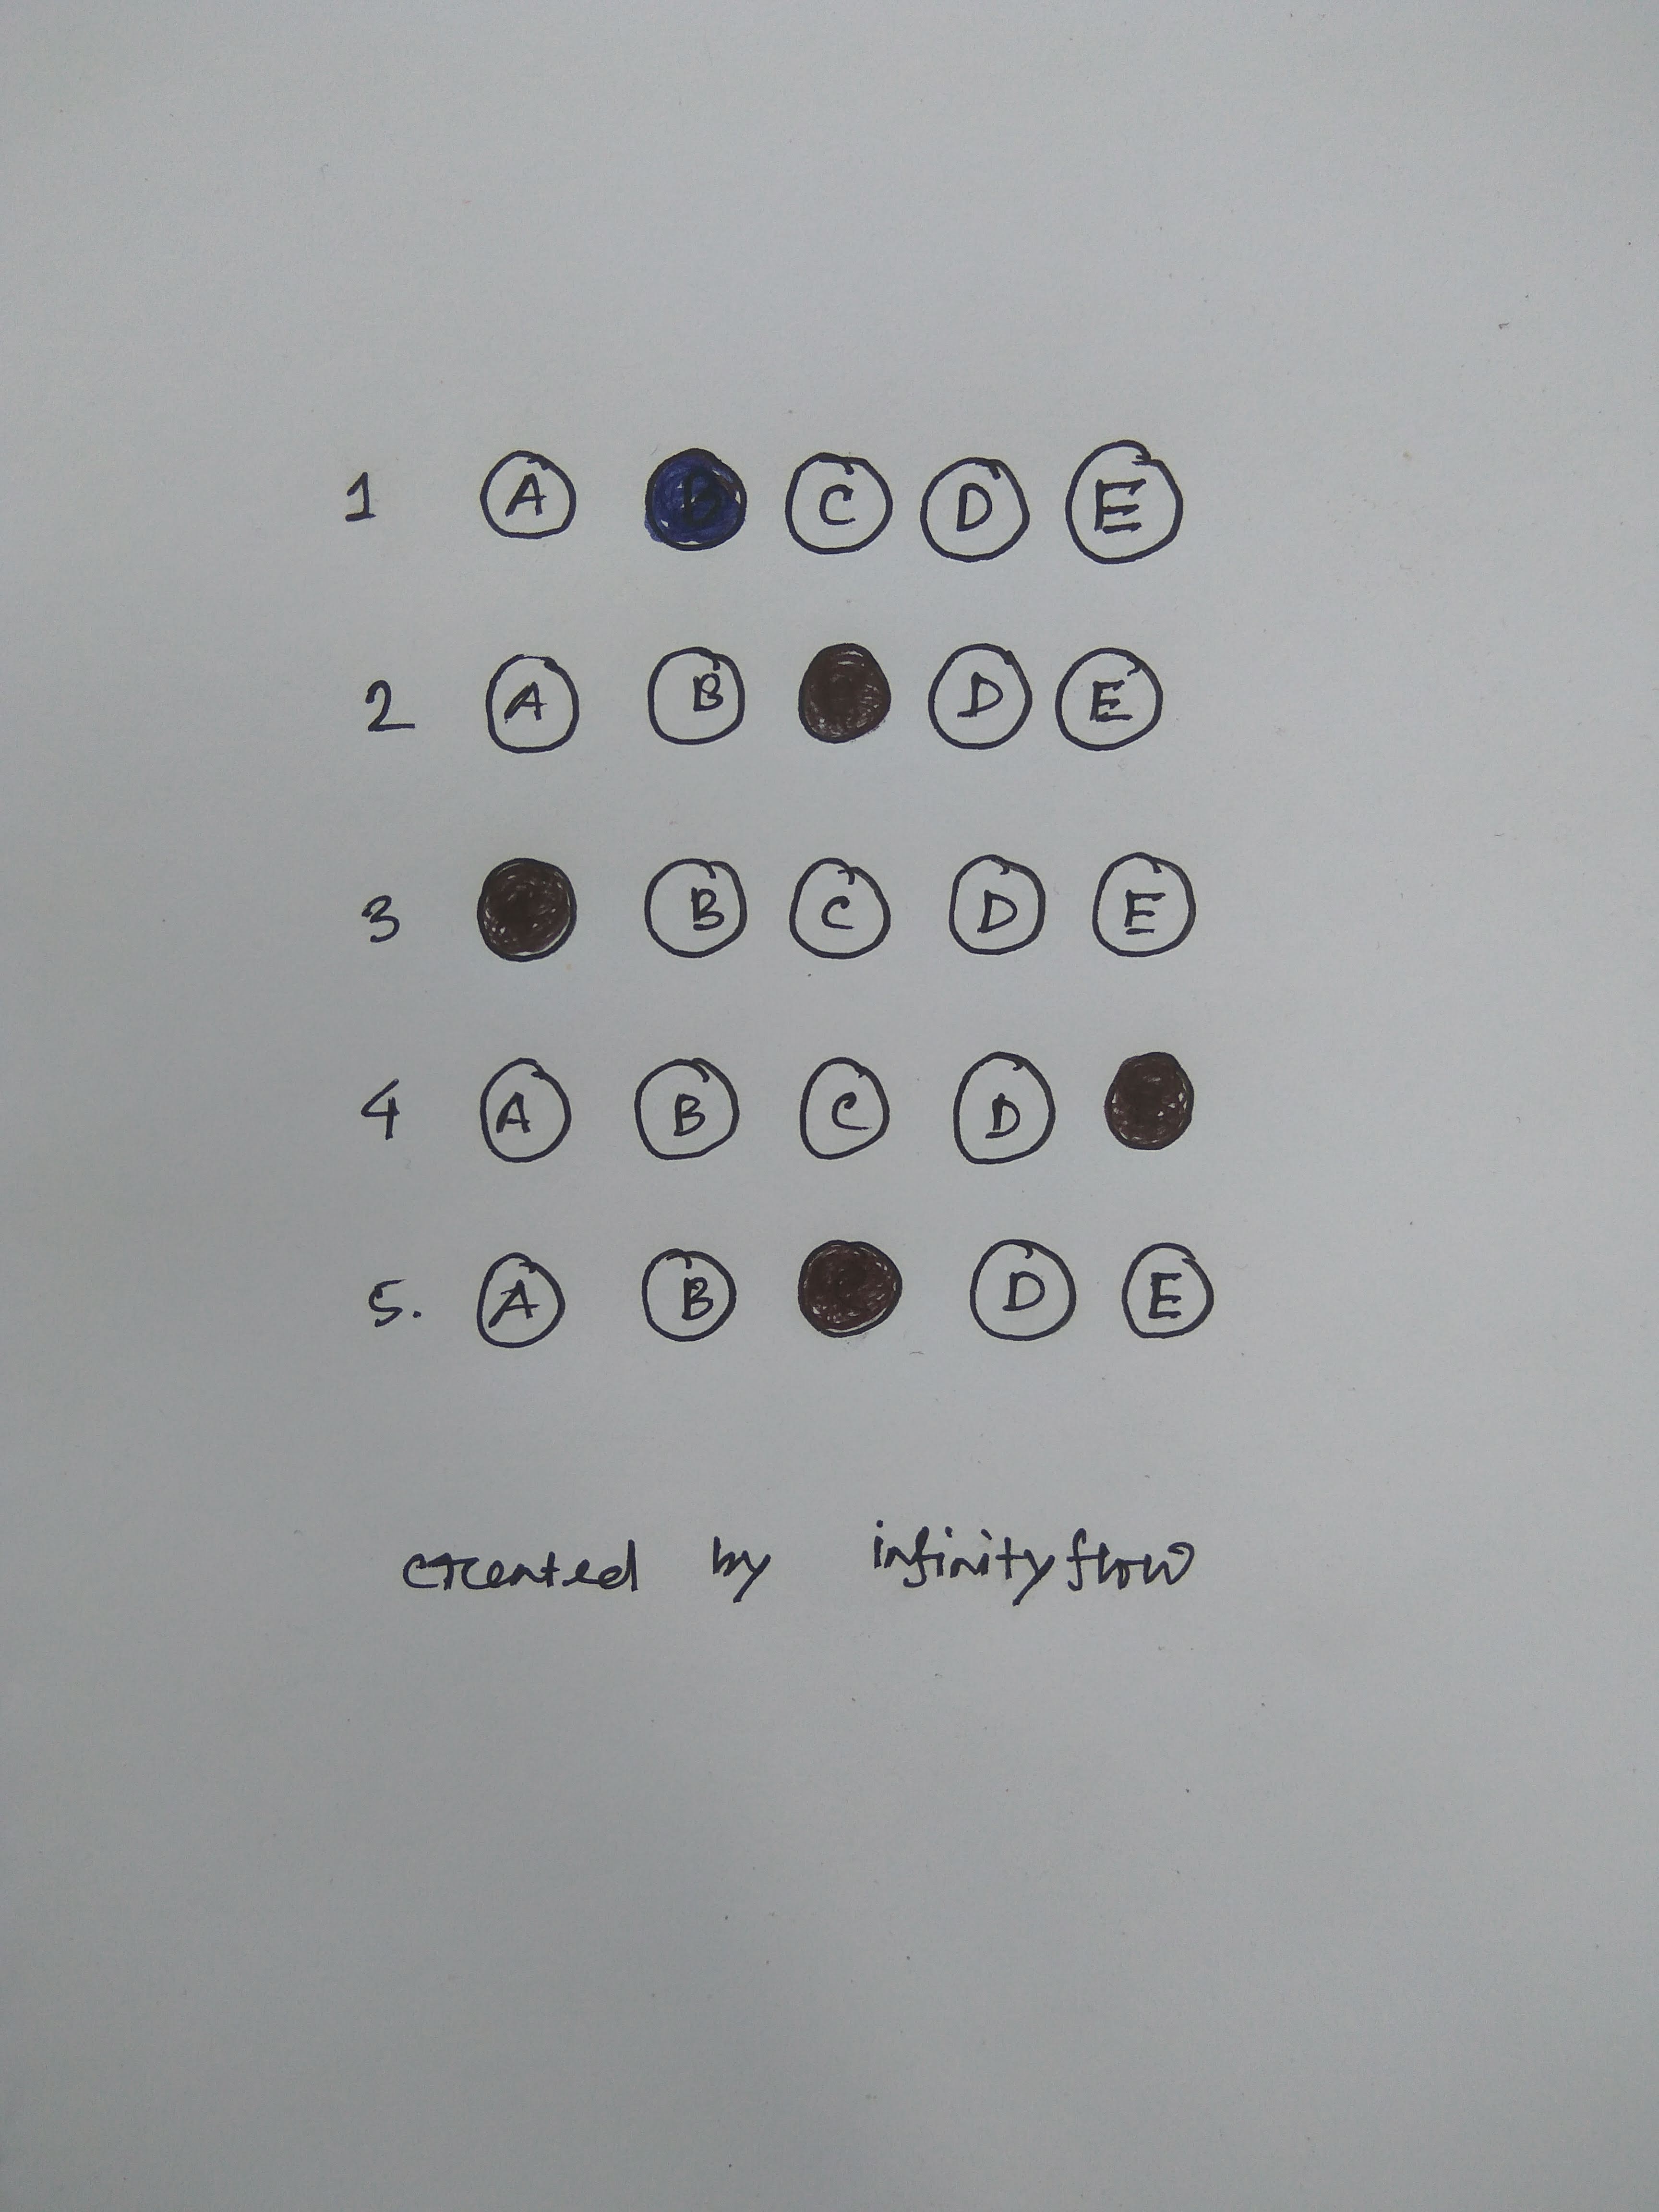 1 A B C D E
2 A B D E
3 B C D E
4 A B C D
5. A B D E
created by infinityflow